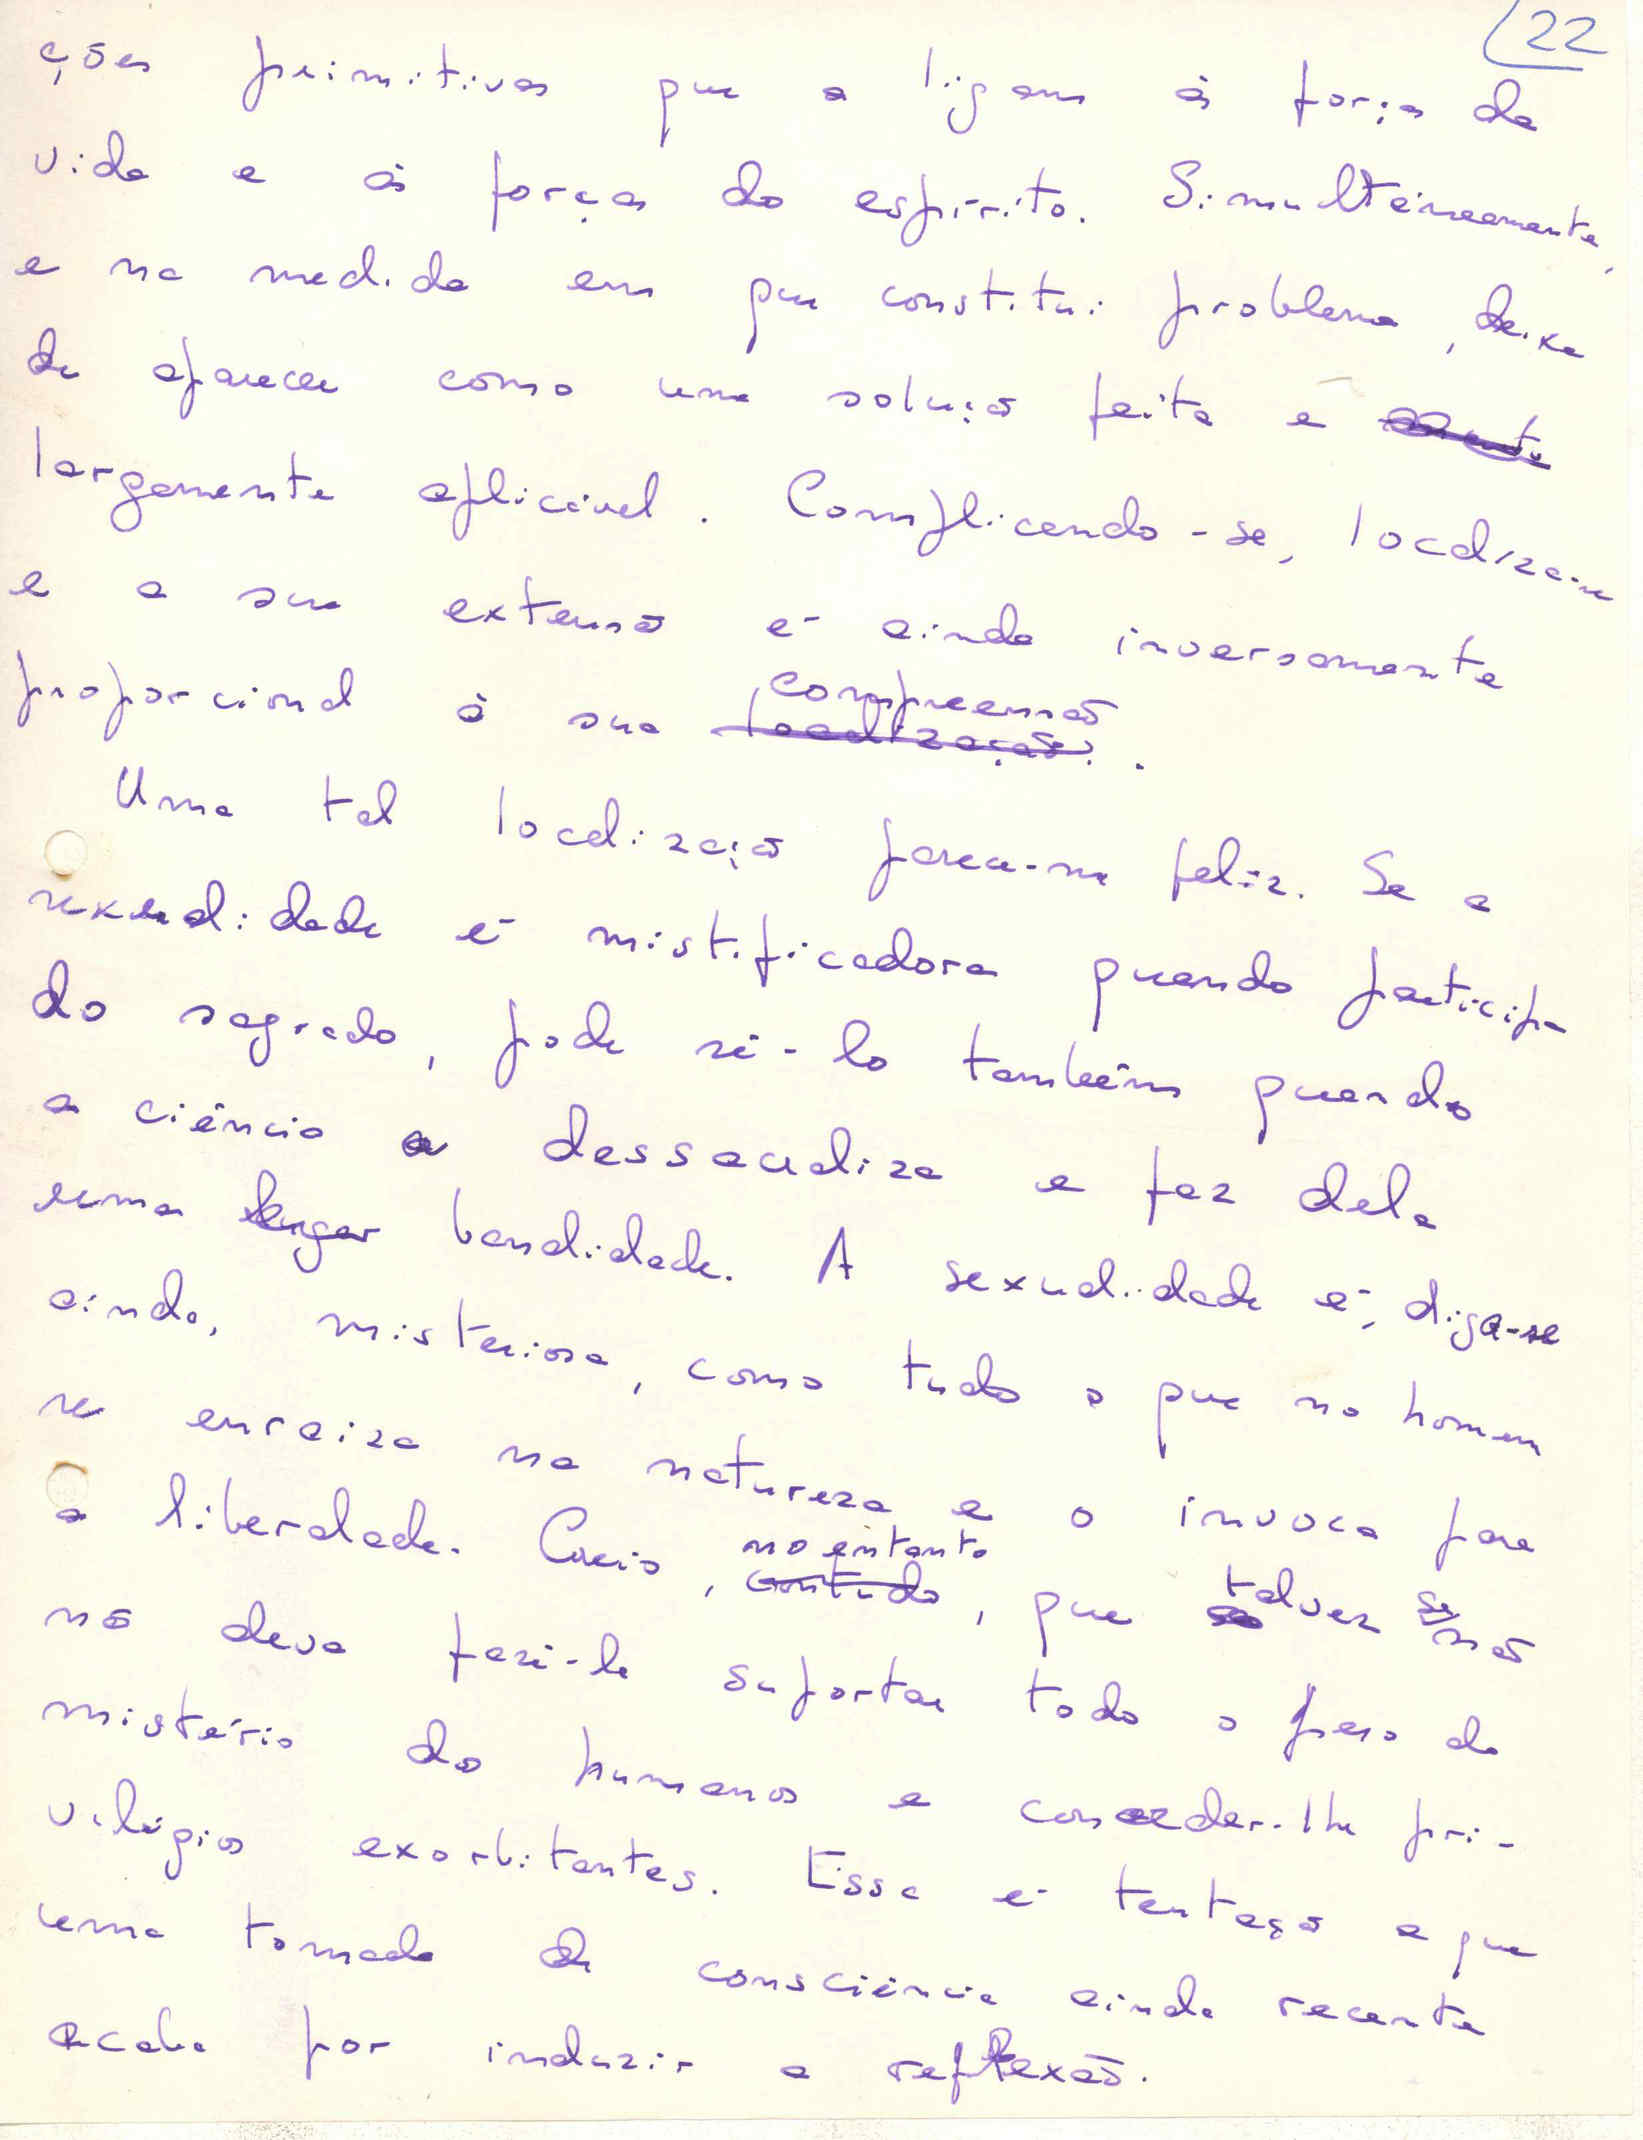 22
ções primitivas que a ligam à força da
vida e à força do espírito. Simultâneamente,
e na medida em que constitui problema, deixa
de aparecer como uma solução feita e
largamente aplicável. Complicando-se, localiza-se
e a sua extensão é ainda inversamente
proporcional à sua compreensão localização.
Uma tal localização parece-me feliz. Se a
sexualidade é mistificadora quando participa
do sagrado, pode sê-lo também quando
a ciência a dessacraliza e faz dela
uma banalidade. A sexualidade é, diga-se
ainda, misteriosa, como tudo o que no homem
se enraiza na natureza e o invoca para
a liberdade. Creio, no entanto contudo, que talvez se não
não deva fazê-la suportar todo o peso do
mistério do humano e conceder-lhe pri-
vilégios exorbitantes. Essa é tentação a que
uma tomada de consciência ainda recente
acaba por induzir a reflexão.